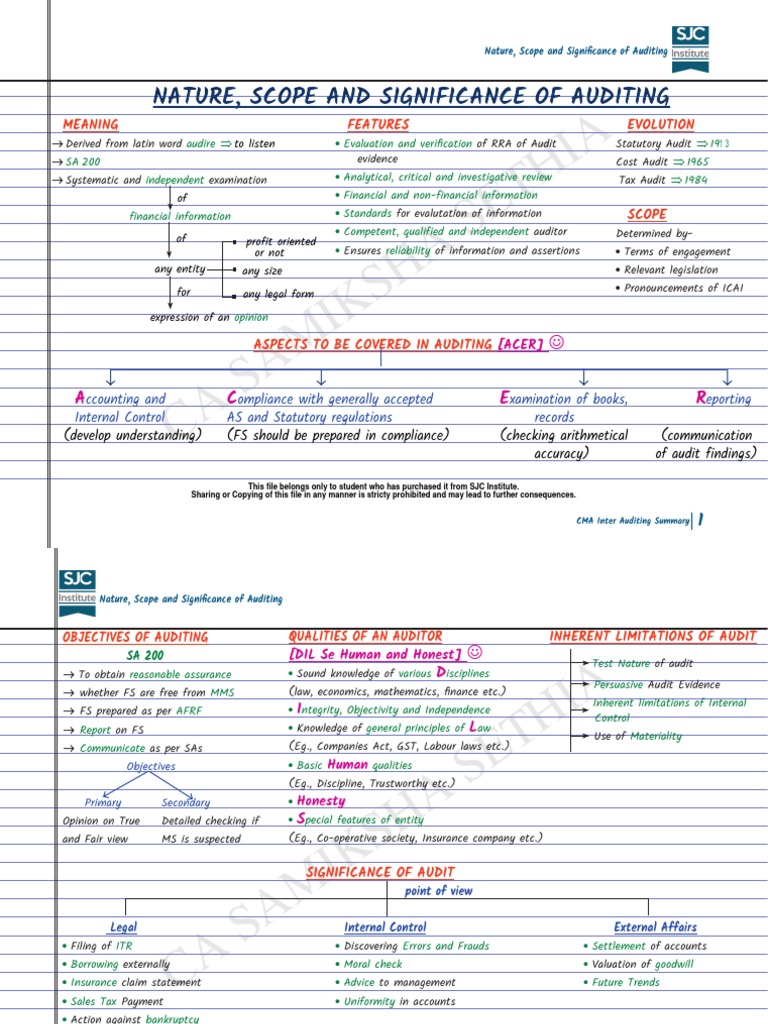 Nature, Scope and Significance of Auditing
SJC
Institute
NATURE, SCOPE AND SIGNIFICANCE OF AUDITING
MEANING
→ Derived from latin word audire ⇒ to listen
→ SA 200
→ Systematic and independent examination
of
financial information
of
any entity
profit oriented
or not
any size
any legal form
for
expression of an opinion
FEATURES
• Evaluation and verification of RRA of Audit
evidence
• Analytical, critical and investigative review
• Financial and non-financial information
• Standards for evalutation of information
• Competent, qualified and independent auditor
• Ensures reliability of information and assertions
EVOLUTION
Statutory Audit ⇒ 1913
Cost Audit ⇒ 1965
Tax Audit ⇒ 1984
SCOPE
Determined by-
• Terms of engagement
• Relevant legislation
• Pronouncements of ICAI
ASPECTS TO BE COVERED IN AUDITING [ACER] ☺
Accounting and
Internal Control
(develop understanding)
Compliance with generally accepted
AS and Statutory regulations
(FS should be prepared in compliance)
Examination of books,
records
(checking arithmetical
accuracy)
Reporting
(communication
of audit findings)
CA SAMIKSHA SETHIA
This file belongs only to student who has purchased it from SJC Institute.
Sharing or Copying of this file in any manner is stricty prohibited and may lead to further consequences.
CMA Inter Auditing Summary 1
SJC
Institute
Nature, Scope and Significance of Auditing
OBJECTIVES OF AUDITING
SA 200
→ To obtain reasonable assurance
→ whether FS are free from MMS
→ FS prepared as per AFRF
→ Report on FS
→ Communicate as per SAs
Objectives
Primary
Opinion on True
and Fair view
Secondary
Detailed checking if
MS is suspected
QUALITIES OF AN AUDITOR
[DIL Se Human and Honest] ☺
• Sound knowledge of various Disciplines
(law, economics, mathematics, finance etc.)
• Integrity, Objectivity and Independence
• Knowledge of general principles of Law
(Eg., Companies Act, GST, Labour laws etc.)
• Basic Human qualities
(Eg., Discipline, Trustworthy etc.)
• Honesty
• Special features of entity
(Eg., Co-operative society, Insurance company etc.)
INHERENT LIMITATIONS OF AUDIT
Test Nature of audit
Persuasive Audit Evidence
Inherent limitations of Internal
Control
Use of Materiality
SIGNIFICANCE OF AUDIT
point of view
Legal
• Filing of ITR
• Borrowing externally
• Insurance claim statement
• Sales Tax Payment
• Action against bankruptcy
Internal Control
• Discovering Errors and Frauds
• Moral check
• Advice to management
• Uniformity in accounts
External Affairs
• Settlement of accounts
• Valuation of goodwill
• Future Trends
CA SAMIKSHA SETHIA